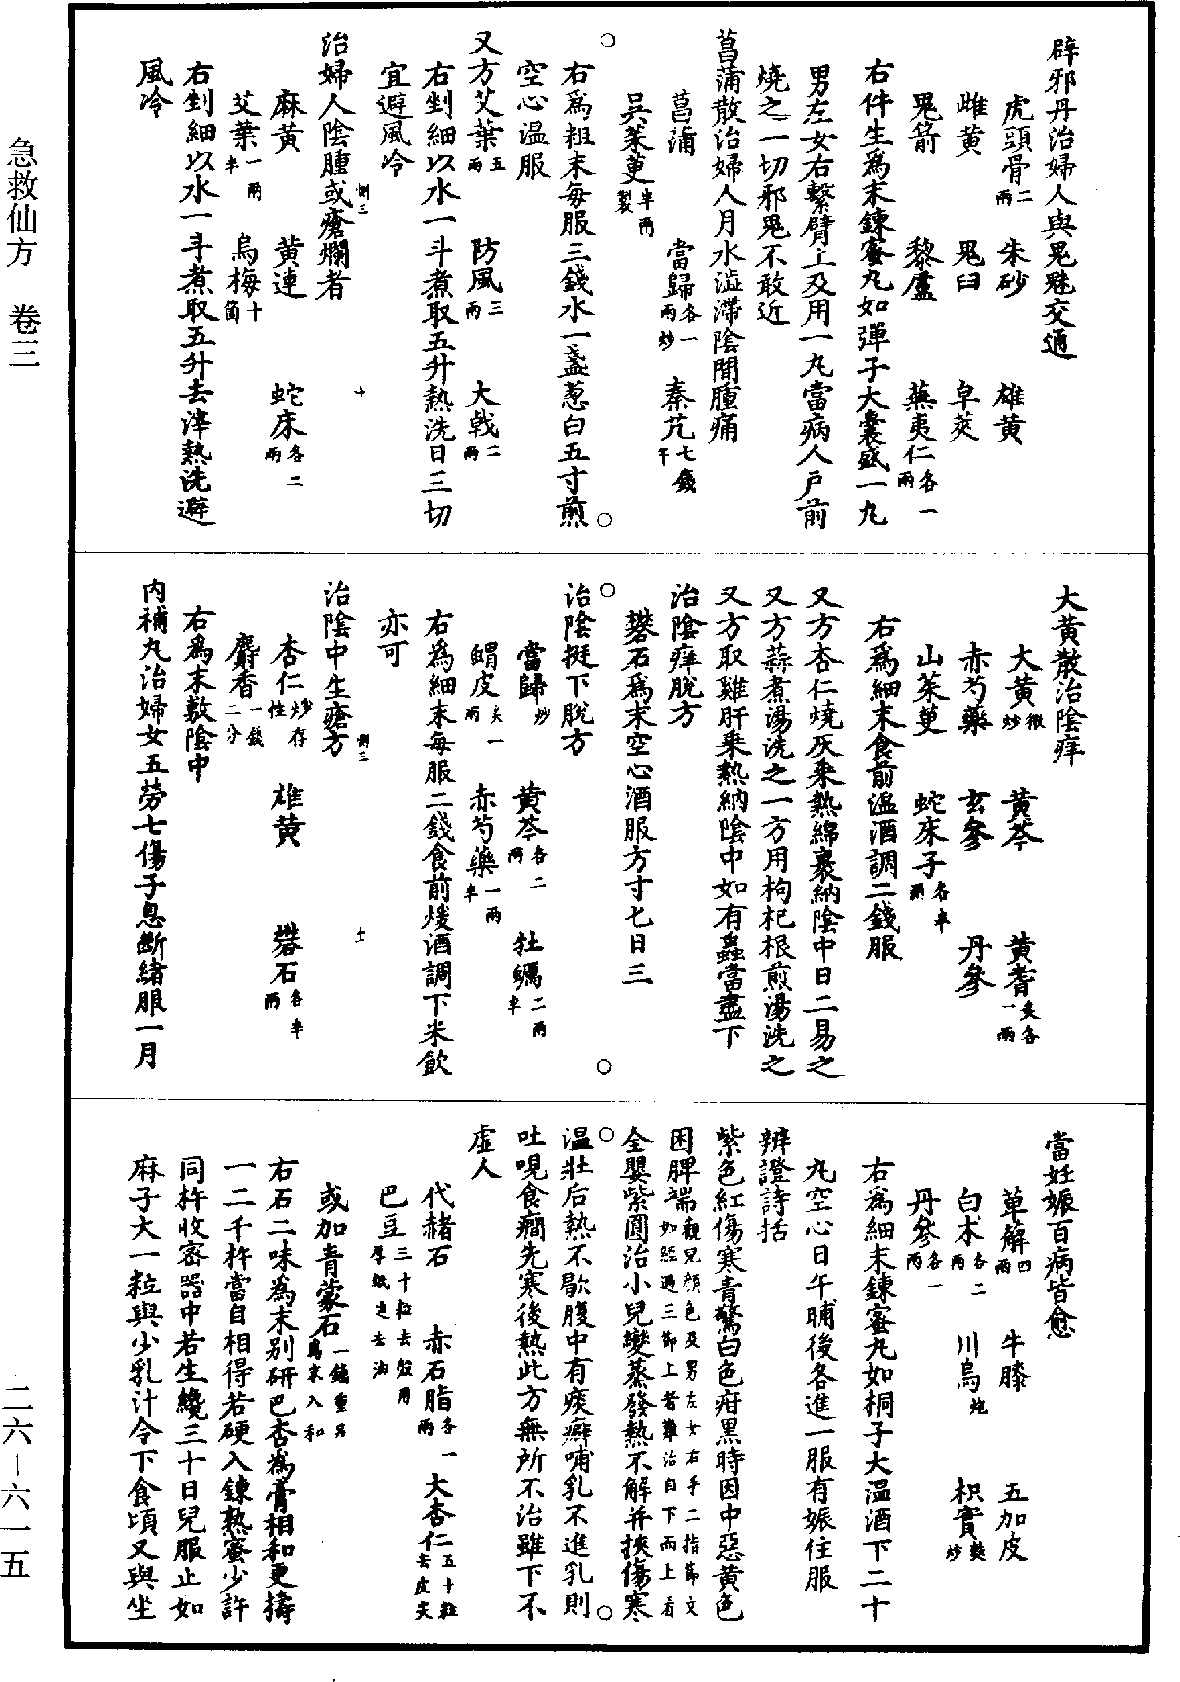 辟邪丹治婦人與鬼魅交通
虎頭骨二兩 朱砂 雄黃
雌黃 鬼臼 皁莢
鬼箭 黎盧 蕪夷仁各一兩
右件生爲末鍊蜜丸如彈子大囊盛一丸
男左女右繫臂上及用一丸當病人戶前
燒之一切邪鬼不敢近
菖蒲散治婦人月水澁滯陰間腫痛
菖蒲 當歸各一兩炒 秦艽七錢半
吳茱萸半兩製
右爲粗末每服三錢水一盞葱白五寸煎
空心溫服
又方艾葉五兩 防風三兩 大戟二兩
右剉細以水一斗煮取五升熱洗日三切
宜避風冷
治婦人陰腫或瘡爛者
麻黃 黃連 蛇床各二兩
艾葉一兩半 烏梅十箇
右剉細以水一斗煮取五升去滓熱洗避
風冷
大黃散治陰痒
大黃微炒 黃芩 黃耆炙各一兩
赤芍藥 玄參 丹參
山茱萸 蛇床子各半兩
右爲細末食前溫酒調二錢服
又方杏仁燒灰乘熱綿裹納陰中日二易之
又方蒜煮湯洗之一方用枸杞根煎湯洗之
又方取雞肝乘熱納陰中如有蟲當盡下
治陰痒脫方
礬石爲末空心酒服方寸匕日三
治陰挺下脫方
當歸炒 黃芩各二兩 牡蠣二兩半
蝟皮炙一兩 赤芍藥一兩半
右爲細末每服二錢食前煖酒調下米飲
亦可
治陰中生瘡方
杏仁炒存性 雄黃 礬石各半兩
麝香一錢二分
右爲末敷陰中
內補丸治婦女五勞七傷子息斷緒服一月
當妊娠百病皆愈
萆解四兩 牛膝 五加皮
白朮各二兩 川烏炮 枳實麩炒
丹參各一兩
右爲細末鍊蜜丸如桐子大溫酒下二十
丸空心日午晡後各進一服有娠住服
辨證詩括
紫色紅傷寒青驚白色疳黑時因中惡黃色
困脾端觀兒顏色及男左女右手二指節文如經過三節上者難治自下而上看
全嬰紫圓治小兒變蒸發熱不解并挾傷寒
溫壯后熱不歇腹中有痰癖哺乳不進乳則
吐哯食癎先寒後熱此方無所不治雖下不
虛人
代赭石 赤石脂各一兩 大杏仁五十粒去皮尖
巴豆三十粒去殼用厚紙迮去油
或加青蒙石一錢重另爲末入和
右石二味爲末別研巴杏爲膏相和更擣
一二千杵當自相得若硬入鍊熟蜜少許
同杵收密器中若生纔三十日兒服止如
麻子大一粒與少乳汁令下食頃又與坐
急救仙方 卷三
二六－六一五